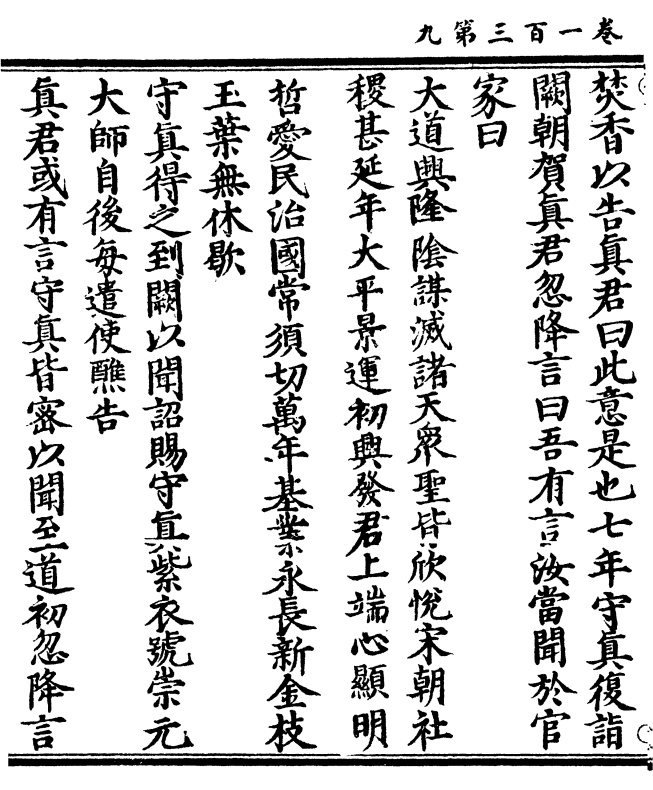 卷一百三第九
焚香以告真君曰此意是也七年守真復詣
闕朝賀真君忽降言曰吾有言汝當聞於官
家曰
大道興隆陰謀滅諸天衆聖皆欣悅宋朝社
稷甚延年大平景運初興發君上端心顯明
哲愛民治國常須切萬年基業永長新金枝
玉葉無休歇
守真得之到闕以聞詔賜守真紫衣號崇元
大師自後每遣使醮告
真君或有言守真皆密以聞至道初忽降言